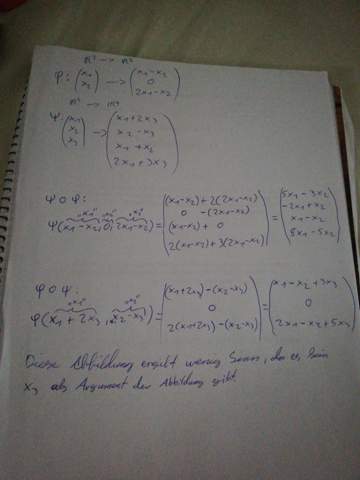 ℝ² --> ℝ³
φ: (x₁ x₂) --> (x₁-x₂ 0 2x₁-x₂)
ℝ³ --> ℝ⁴
ψ: (x₁ x₂ x₃) --> (x₁+2x₃ x₂-x₃ x₁+x₂ 2x₁+3x₃)
ψ∘φ:
"x₁" "x₂" "x₃"
ψ(x₁-x₂, 0, 2x₁-x₂) = ((x₁-x₂)+2(2x₁-x₂) 0-(2x₁-x₂) (x₁-x₂)+0 2(x₁-x₂)+3(2x₁-x₂)) = (5x₁-3x₂ -2x₁+x₂ x₁-x₂ 8x₁-5x₂)
φ∘ψ:
"x₁" "x₂"
φ(x₁+2x₃, x₂-x₃) = ((x₁+2x₃)-(x₂-x₃) 0 2(x₁+2x₃)-(x₂-x₃)) = (x₁-x₂+3x₃ 0 2x₁-x₂+5x₃)
Diese Abbildung ergibt wenig Sinn, da es kein
x₃ als Argument der Abbildung gibt